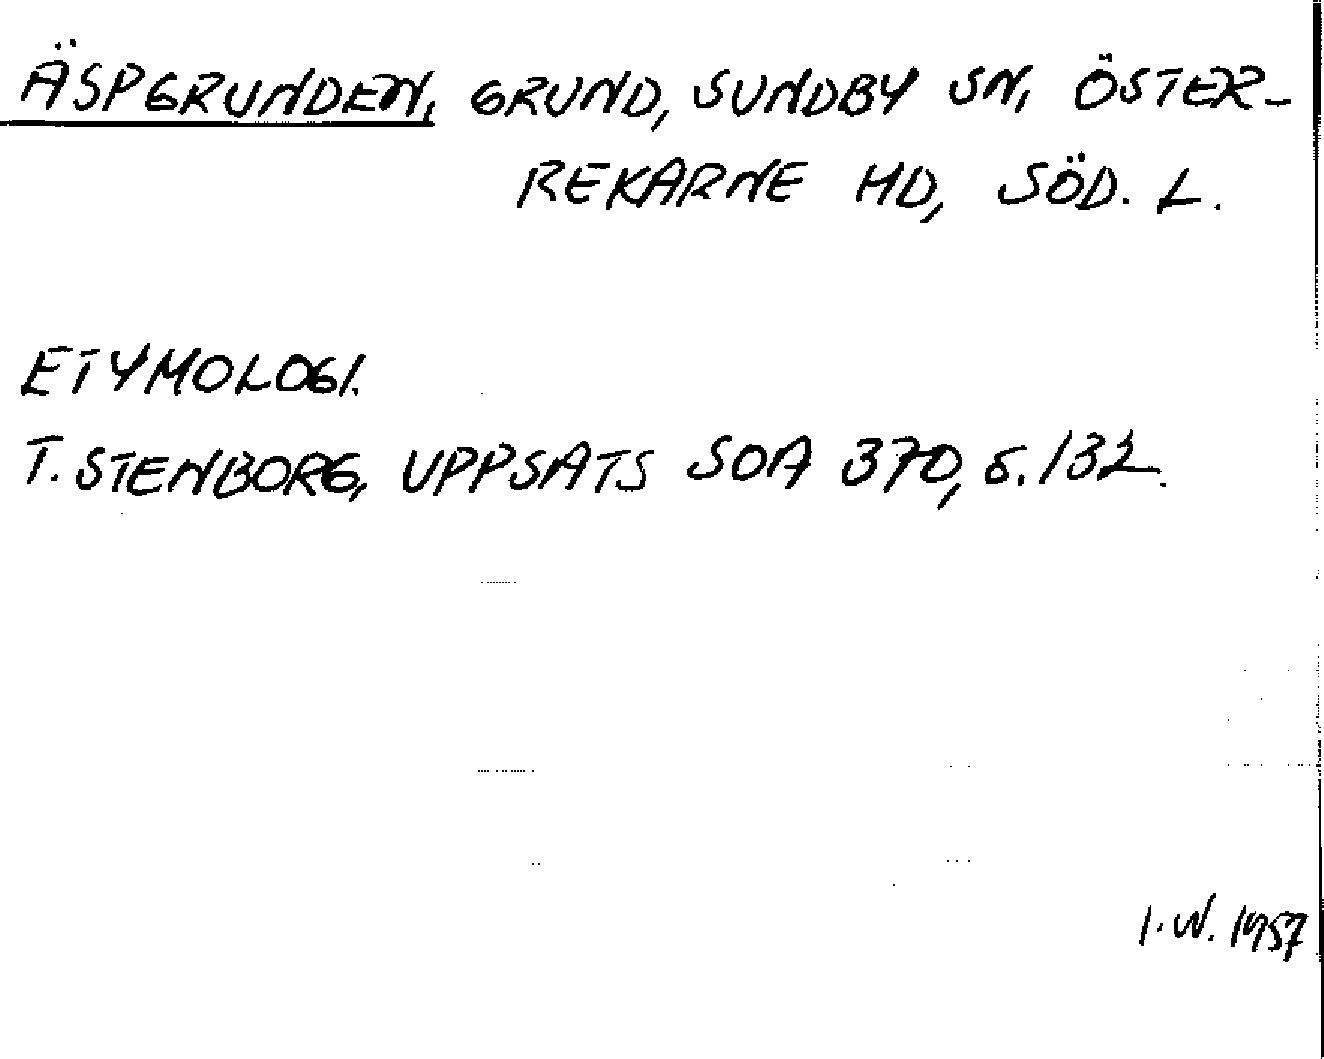 ÄSPGRUNDEN, GRUND, SUNDBY SN, ÖSTER-
REKARNE HD, SÖD. L.
ETYMOLOGI.
T. STENBORG, UPPSATS SOA 370, S. 132.
I. W. 1957